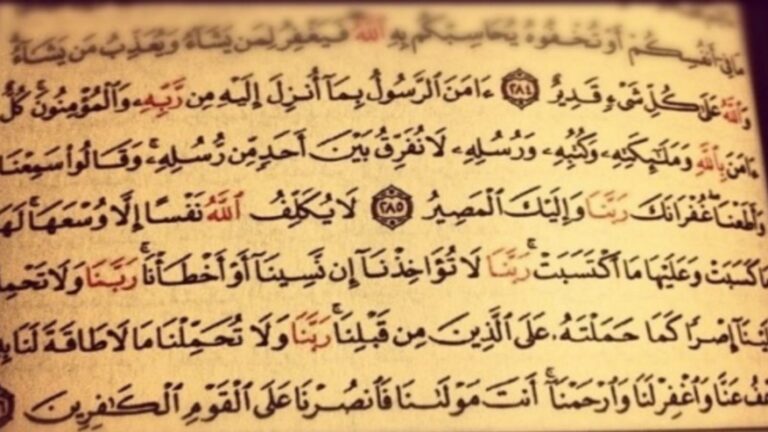 مَا فِىٓ أَنفُسِكُمْ أَوْ تُخْفُوهُ يُحَاسِبْكُم بِهِ ٱللَّهُ فَيَغْفِرُ لِمَن يَشَآءُ وَيُعَذِّبُ مَن يَشَآءُ
وَٱللَّهُ عَلَىٰ كُلِّ شَىْءٍ قَدِيرٌ ٢٨٤ ءَامَنَ ٱلرَّسُولُ بِمَآ أُنزِلَ إِلَيْهِ مِن رَّبِّهِۦ وَٱلْمُؤْمِنُونَ ۚ كُلٌّ
ءَامَنَ بِٱللَّهِ وَمَلَـٰٓئِكَتِهِۦ وَكُتُبِهِۦ وَرُسُلِهِۦ لَا نُفَرِّقُ بَيْنَ أَحَدٍ مِّن رُّسُلِهِۦ ۚ وَقَالُوا۟ سَمِعْنَا
وَأَطَعْنَا ۖ غُفْرَانَكَ رَبَّنَا وَإِلَيْكَ ٱلْمَصِيرُ ٢٨٥ لَا يُكَلِّفُ ٱللَّهُ نَفْسًا إِلَّا وُسْعَهَا ۚ لَهَا
مَا كَسَبَتْ وَعَلَيْهَا مَا ٱكْتَسَبَتْ ۗ رَبَّنَا لَا تُؤَاخِذْنَآ إِن نَّسِينَآ أَوْ أَخْطَأْنَا ۚ رَبَّنَا وَلَا تَحْمِلْ
عَلَيْنَآ إِصْرًا كَمَا حَمَلْتَهُۥ عَلَى ٱلَّذِينَ مِن قَبْلِنَا ۚ رَبَّنَا وَلَا تُحَمِّلْنَا مَا لَا طَاقَةَ لَنَا بِهِ
وَٱعْفُ عَنَّا وَٱغْفِرْ لَنَا وَٱرْحَمْنَآ ۚ أَنتَ مَوْلَىٰنَا فَٱنصُرْنَا عَلَى ٱلْقَوْمِ ٱلْكَـٰفِرِينَ